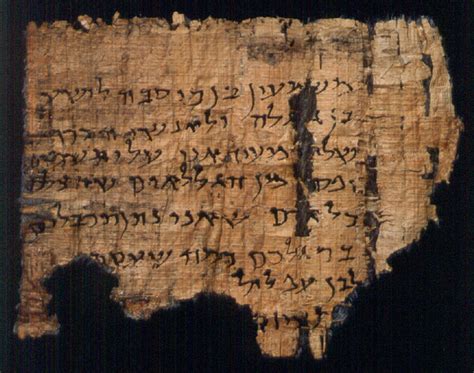 משמעון בן כוסבה לישע
בן גלגלה ולאנשי
שלום מעיד אני עלי תשמים
מן הגללאים
כל אדם שאני נותן תכבלים
ברגלכם כמה שעסת
לבן עפלול